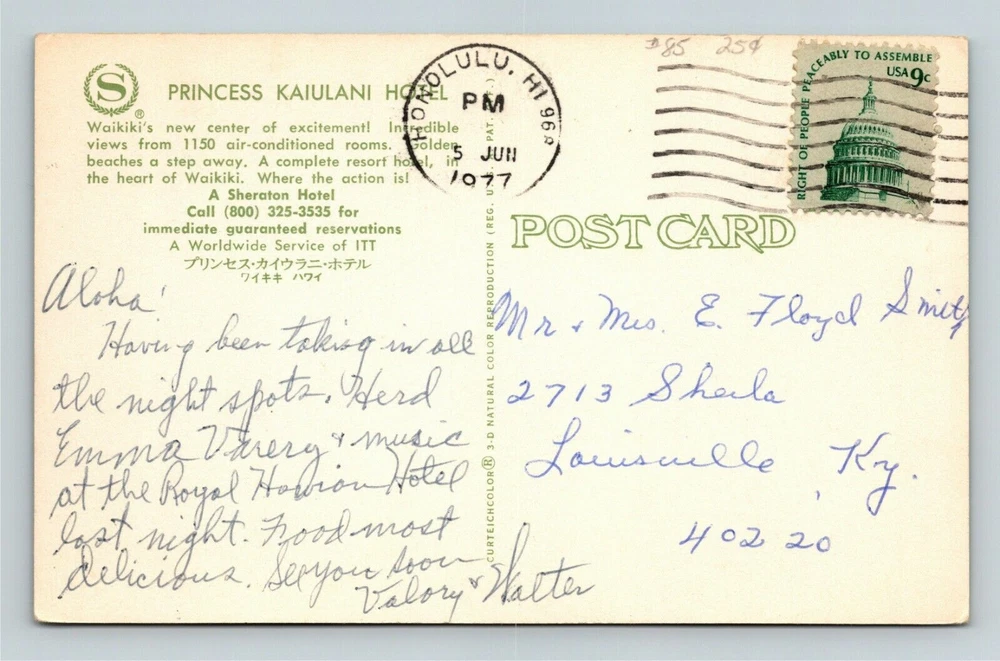 S ®
PRINCESS KAIULANI HOTEL
Waikiki's new center of excitement! Incredible
views from 1150 air-conditioned rooms. Golden
beaches a step away. A complete resort hotel, in
the heart of Waikiki. Where the action is!
A Sheraton Hotel
Call (800) 325-3535 for
immediate guaranteed reservations
A Worldwide Service of ITT
プリンセス・カイウラニ・ホテル
ワイキキ ハワイ
Aloha!
Having been taking in all
the night spots. Herd
Emma Varery & music
at the Royal Hawion Hotel
last night. Food most
delicious. See you soon
Valory & Walter
CURTEICHCOLOR® 3-D NATURAL COLOR REPRODUCTION (REG. U.S. PAT.
HONOLULU, HI 968
PM
5 JUN
1977
$85 25¢
RIGHT OF PEOPLE PEACEABLY TO ASSEMBLE
USA 9c
POST CARD
Mr & Mrs. E. Floyd Smith
2713 Sheila
Louisville Ky.
40220